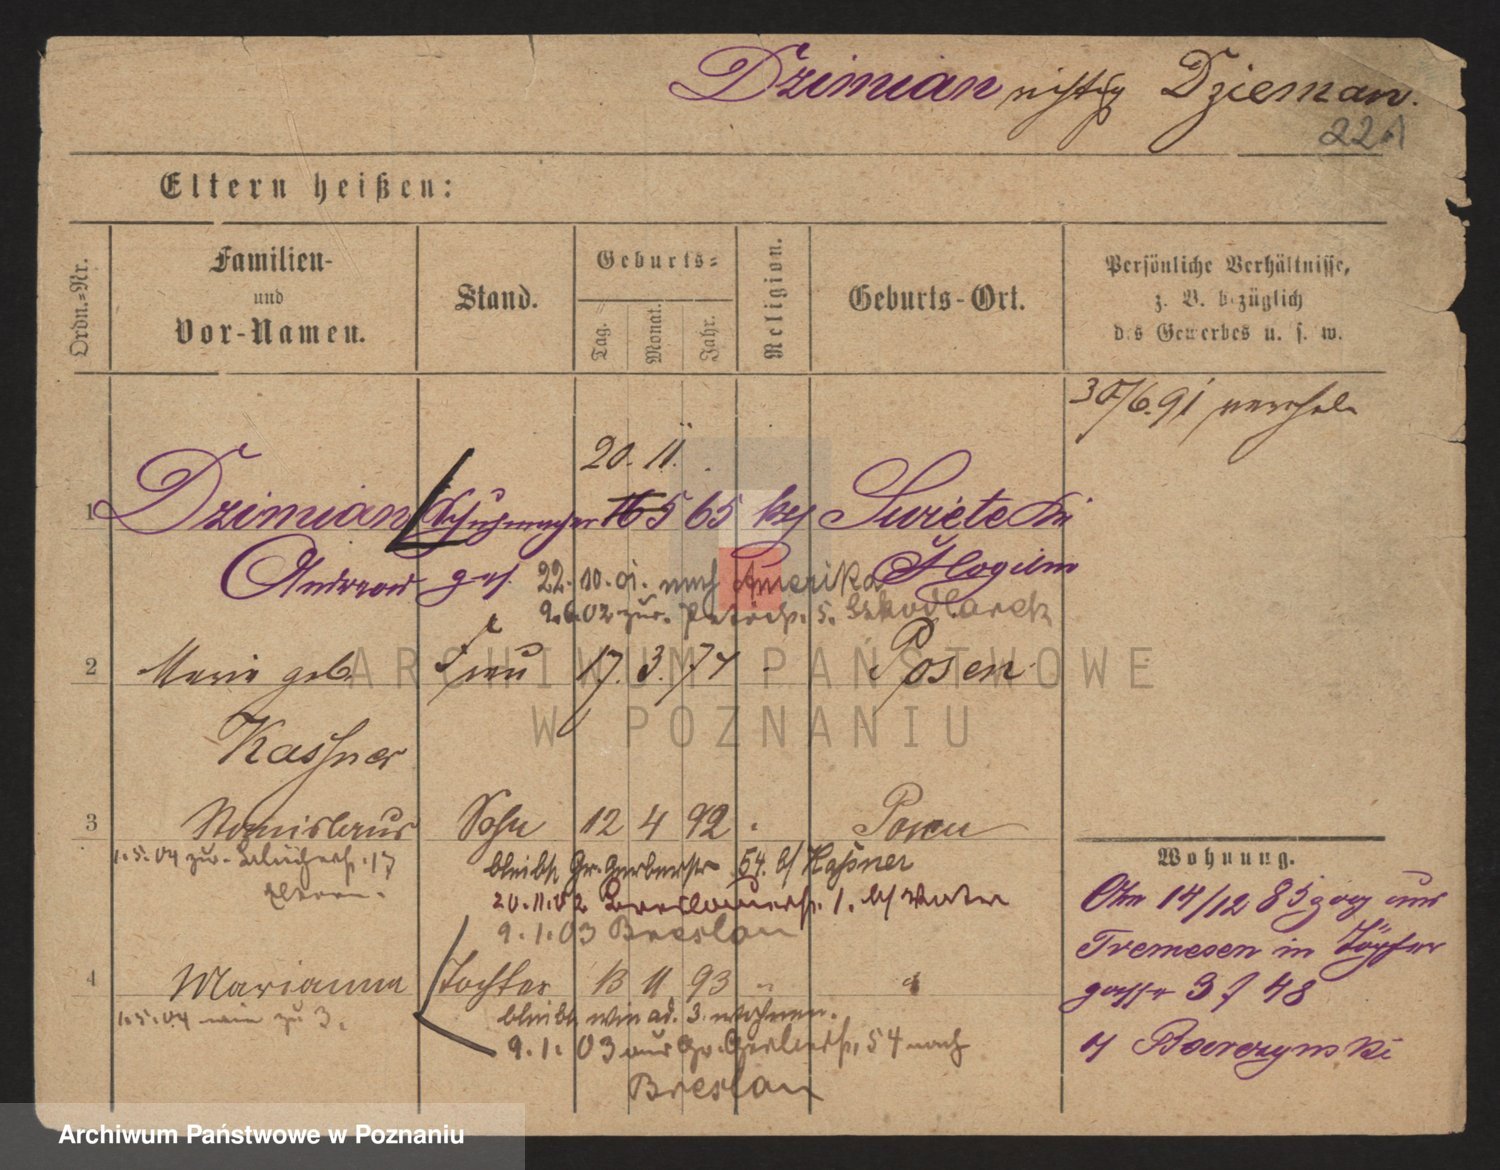 Dzimian richtig Dzieman.
221
Eltern heißen:
Ordn.-Nr.
Familien-
und
Vor-Namen.
Stand.
Geburts-
Tag.
Monat.
Jahr.
Religion.
Geburts-Ort.
Persönliche Verhältnisse,
z. B. bezüglich
des Gewerbes u. s. w.
30/6.91
20. 11.
1 Dzimian Schuhmacher 16 5 65 Swiete
Andreas ges. Mogilno
22.10.01. nach Amerika
9.6.02 zur. 5.
2 Marie geb. Frau 17. 3. 74 Posen
Kassner
3 Stanislaus Sohn 12 4 92 Posen
1.5.04 zur. 17
Eltern.
bleibt Gr. Gerberstr. 54. b/ Kassner
20.11.02 Breslauerstr. 1. b/ Vater
9.1.03 Breslau
4 Marianna Tochter 13 11 93 "
1.5.04 wie zu 3.
bleibt wie ad. 3. wohnen.
9.1.03 aus Gr. Gerberstr. 54 nach
Breslau
Wohnung.
14/12 85 zog aus
Tremesen in Töpfer
gasse 3 / 48
b/
ARCHIWUM PAŃSTWOWE
W POZNANIU
Archiwum Państwowe w Poznaniu